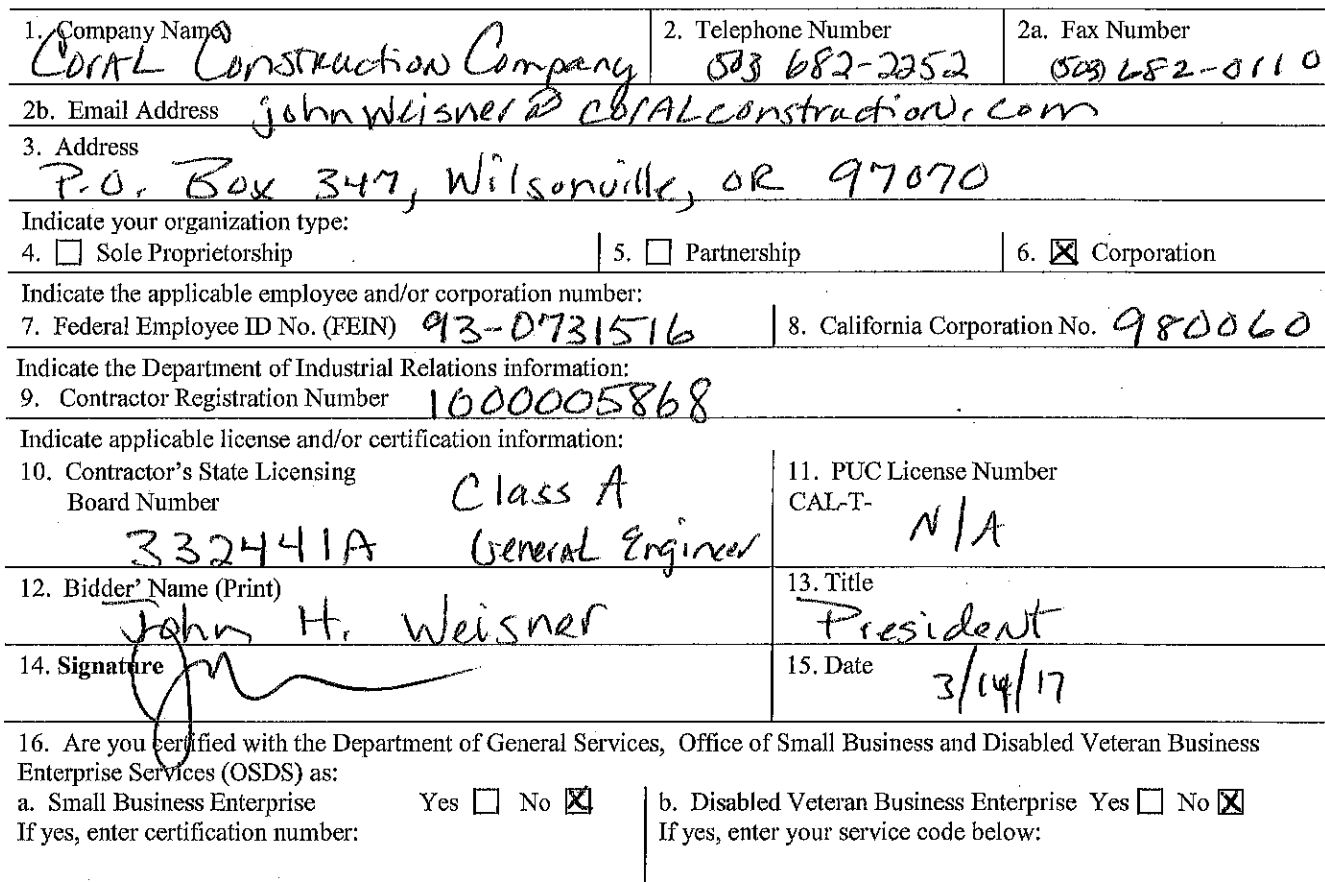 1. Company Name 2. Telephone Number 2a. Fax Number
CorAL Construction Company (503) 682-2252 (503) 682-0110
2b. Email Address johnweisner@corALconstruction.com
3. Address
P.O. Box 347, Wilsonville, OR 97070
Indicate your organization type:
4. ☐ Sole Proprietorship 5. ☐ Partnership 6. ☒ Corporation
Indicate the applicable employee and/or corporation number:
7. Federal Employee ID No. (FEIN) 93-0731516 8. California Corporation No. 980060
Indicate the Department of Industrial Relations information:
9. Contractor Registration Number 1000005868
Indicate applicable license and/or certification information:
10. Contractor's State Licensing Board Number Class A 11. PUC License Number
CAL-T- N/A
332441A General Engineer
12. Bidder' Name (Print) 13. Title
John H. Weisner President
14. Signature 15. Date 3/14/17
16. Are you certified with the Department of General Services, Office of Small Business and Disabled Veteran Business
Enterprise Services (OSDS) as:
a. Small Business Enterprise Yes ☐ No ☒ b. Disabled Veteran Business Enterprise Yes ☐ No ☒
If yes, enter certification number: If yes, enter your service code below: